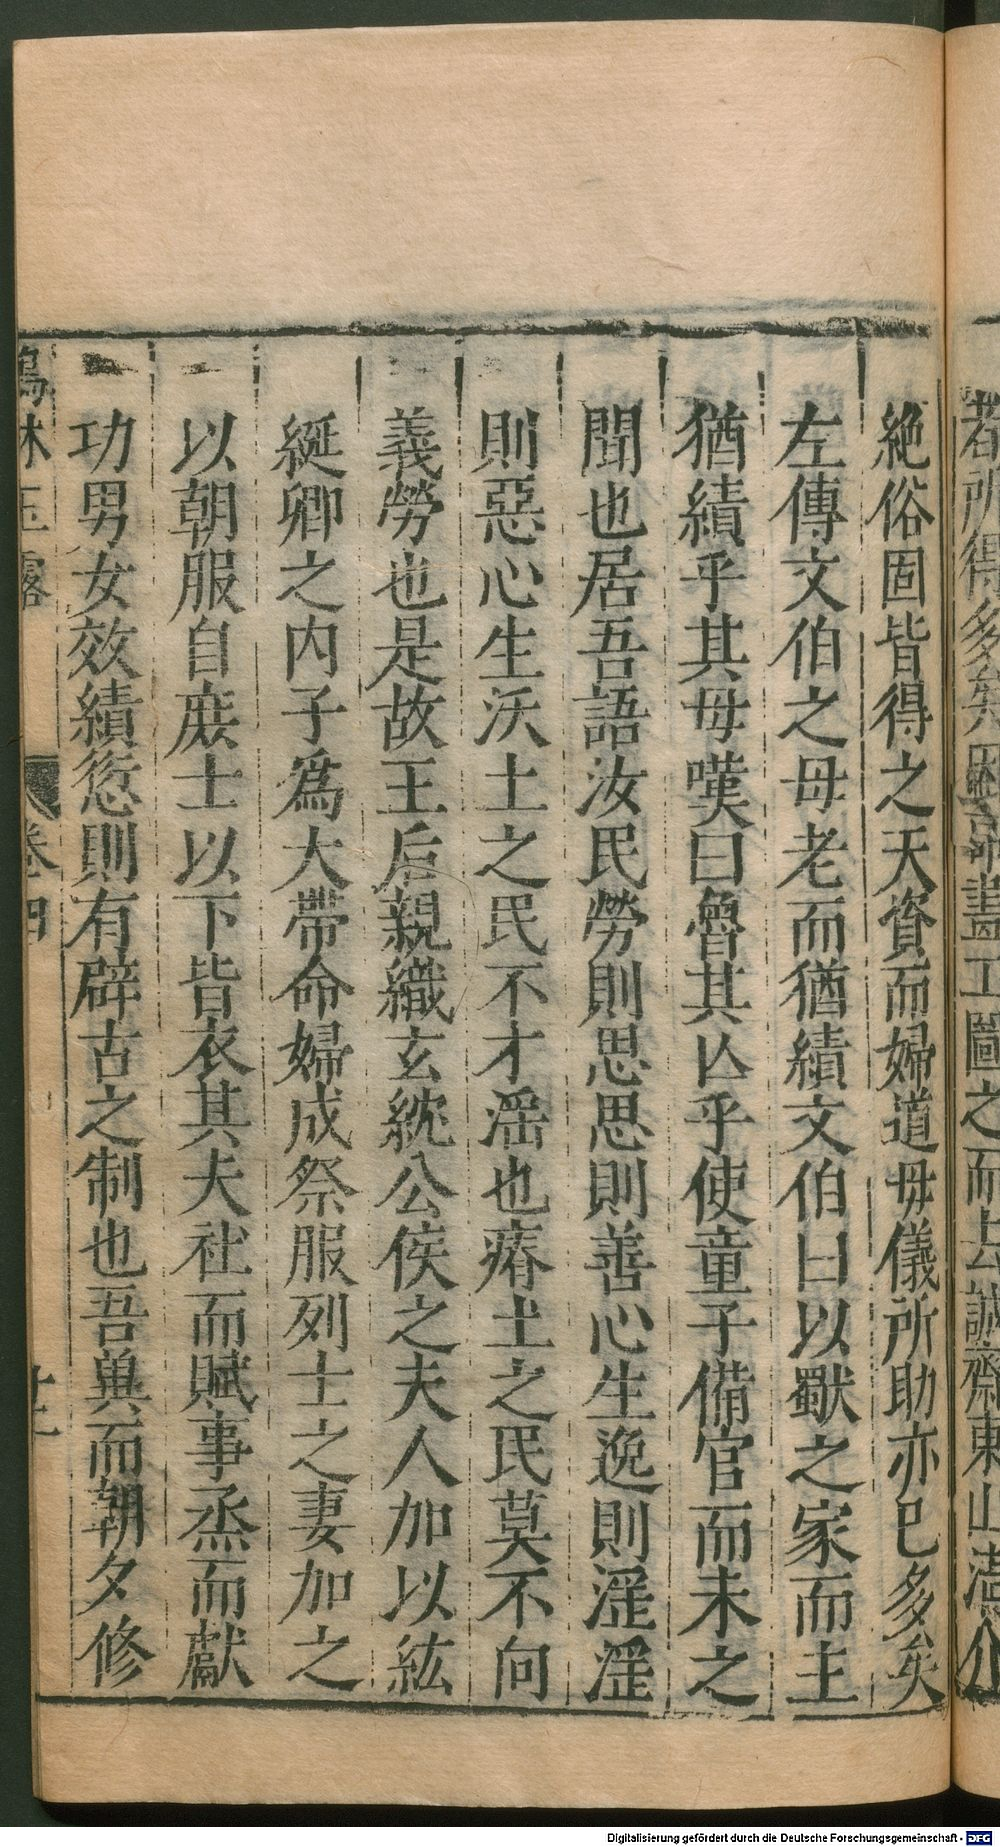 絶俗固皆得之天資而婦道母儀所助亦已多矣
左傳文伯之母老而猶績文伯曰以歜之家而主
猶績乎其母嘆曰魯其亾乎使童子備官而未之
聞也居吾語汝民勞則思思則善心生逸則滛滛
則惡心生沃土之民不才滛也瘠土之民莫不向
義勞也是故王后親織玄紞公侯之夫人加以紘
綖卿之内子爲大帶命婦成祭服列士之妻加之
以朝服自庶士以下皆衣其夫社而賦事烝而獻
功男女效績愆則有辟古之制也吾兾而朝夕修
林玉露
卷四
Digitalisierung gefördert durch die Deutsche Forschungsgemeinschaft - DFG